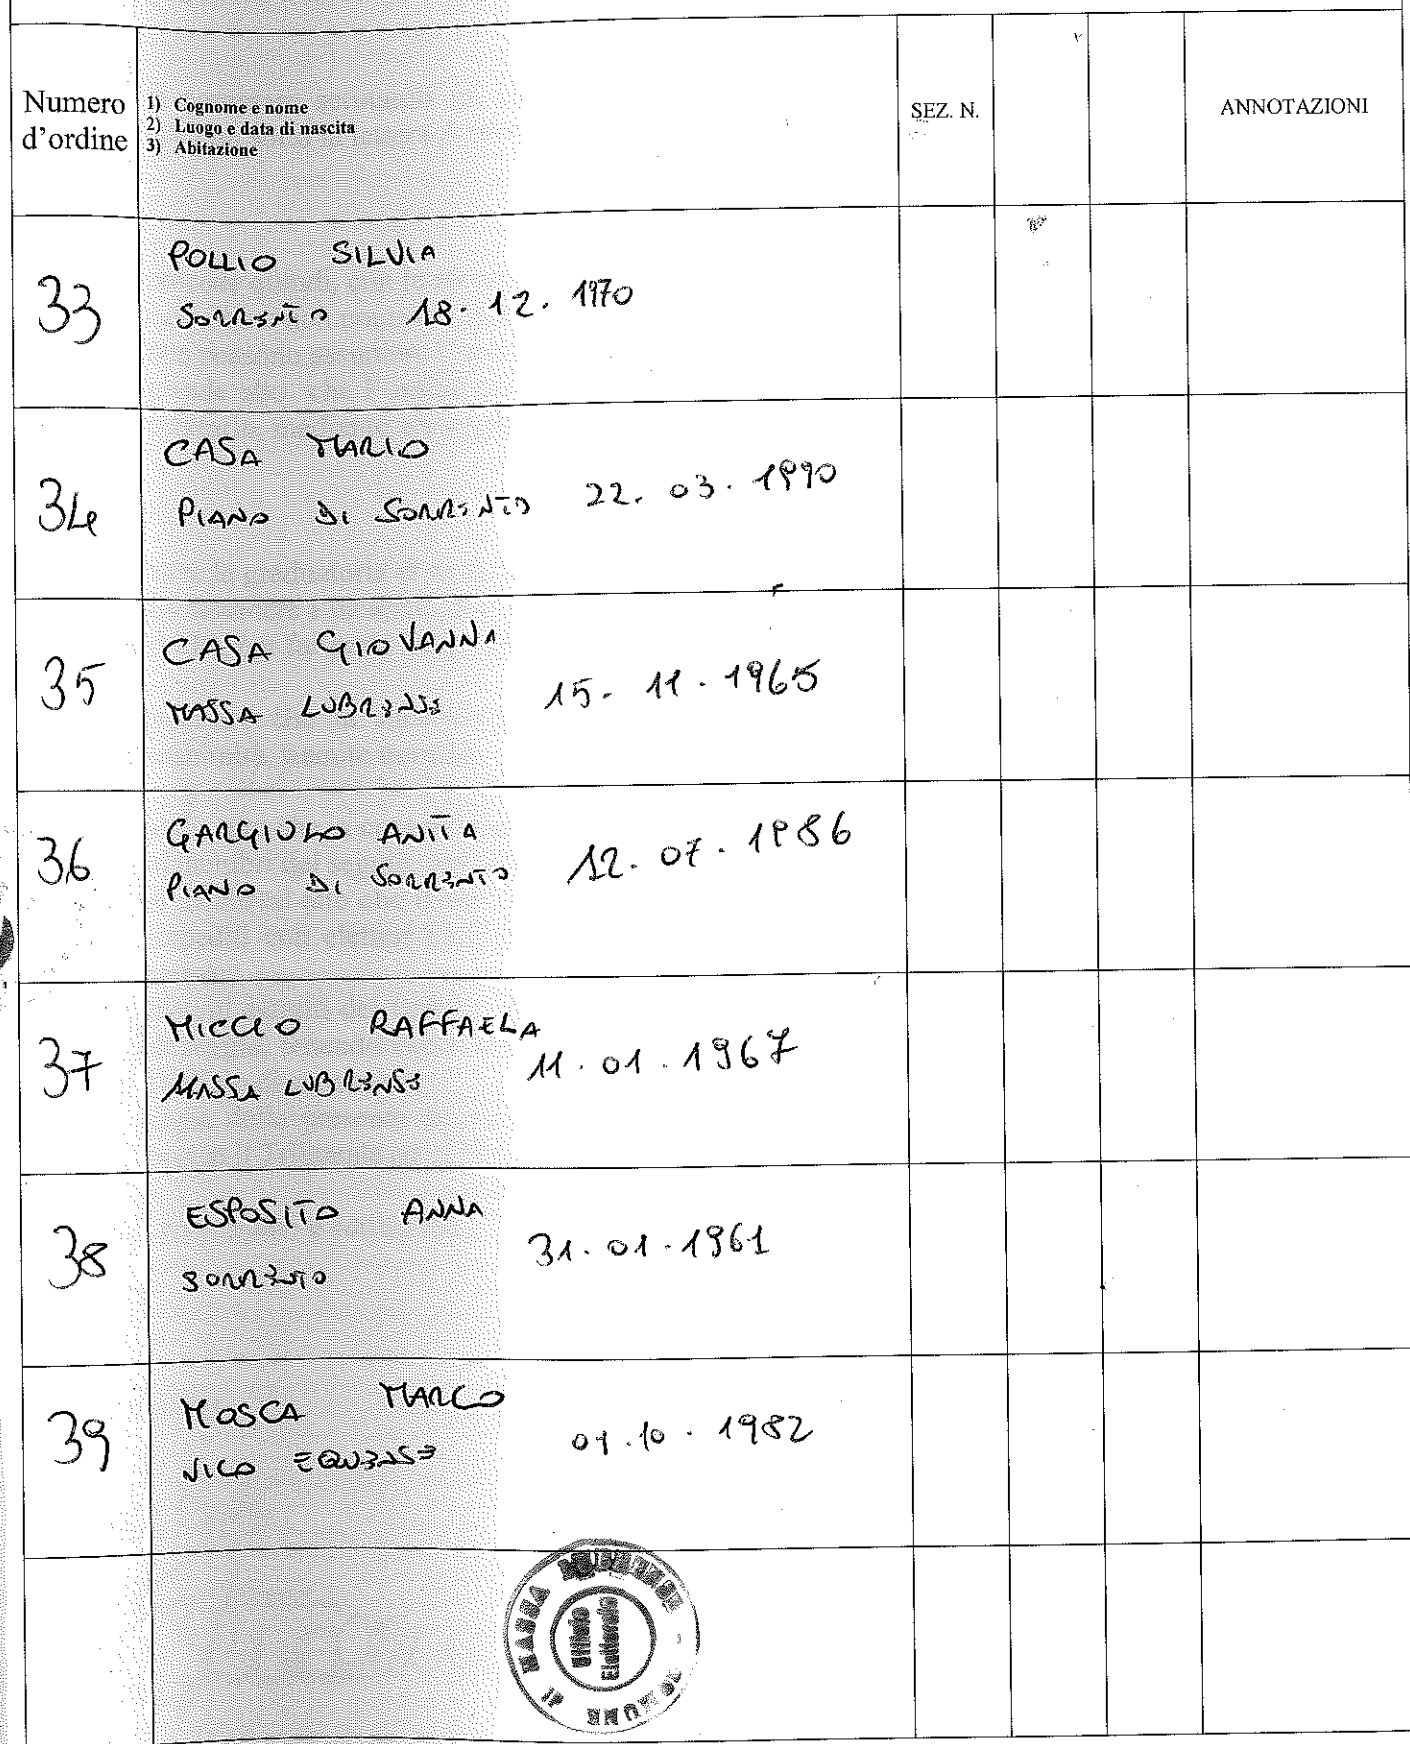 Numero d'ordine
1) Cognome e nome
2) Luogo e data di nascita
3) Abitazione
SEZ. N.
ANNOTAZIONI
33
POLLIO SILVIA
SORRENTO 18.12.1970
34
CASA MARIO
PIANO DI SORRENTO 22.03.1990
35
CASA GIOVANNA
MASSA LUBRENSE 15.11.1965
36
GARGIULO ANITA
PIANO DI SORRENTO 12.07.1986
37
MICCIO RAFFAELA
MASSA LUBRENSE 11.01.1967
38
ESPOSITO ANNA
SORRENTO 31.01.1961
39
MOSCA MARCO
VICO EQUENSE 01.10.1982
COMUNE di MASSA LUBRENSE
Ufficio
Elettorale